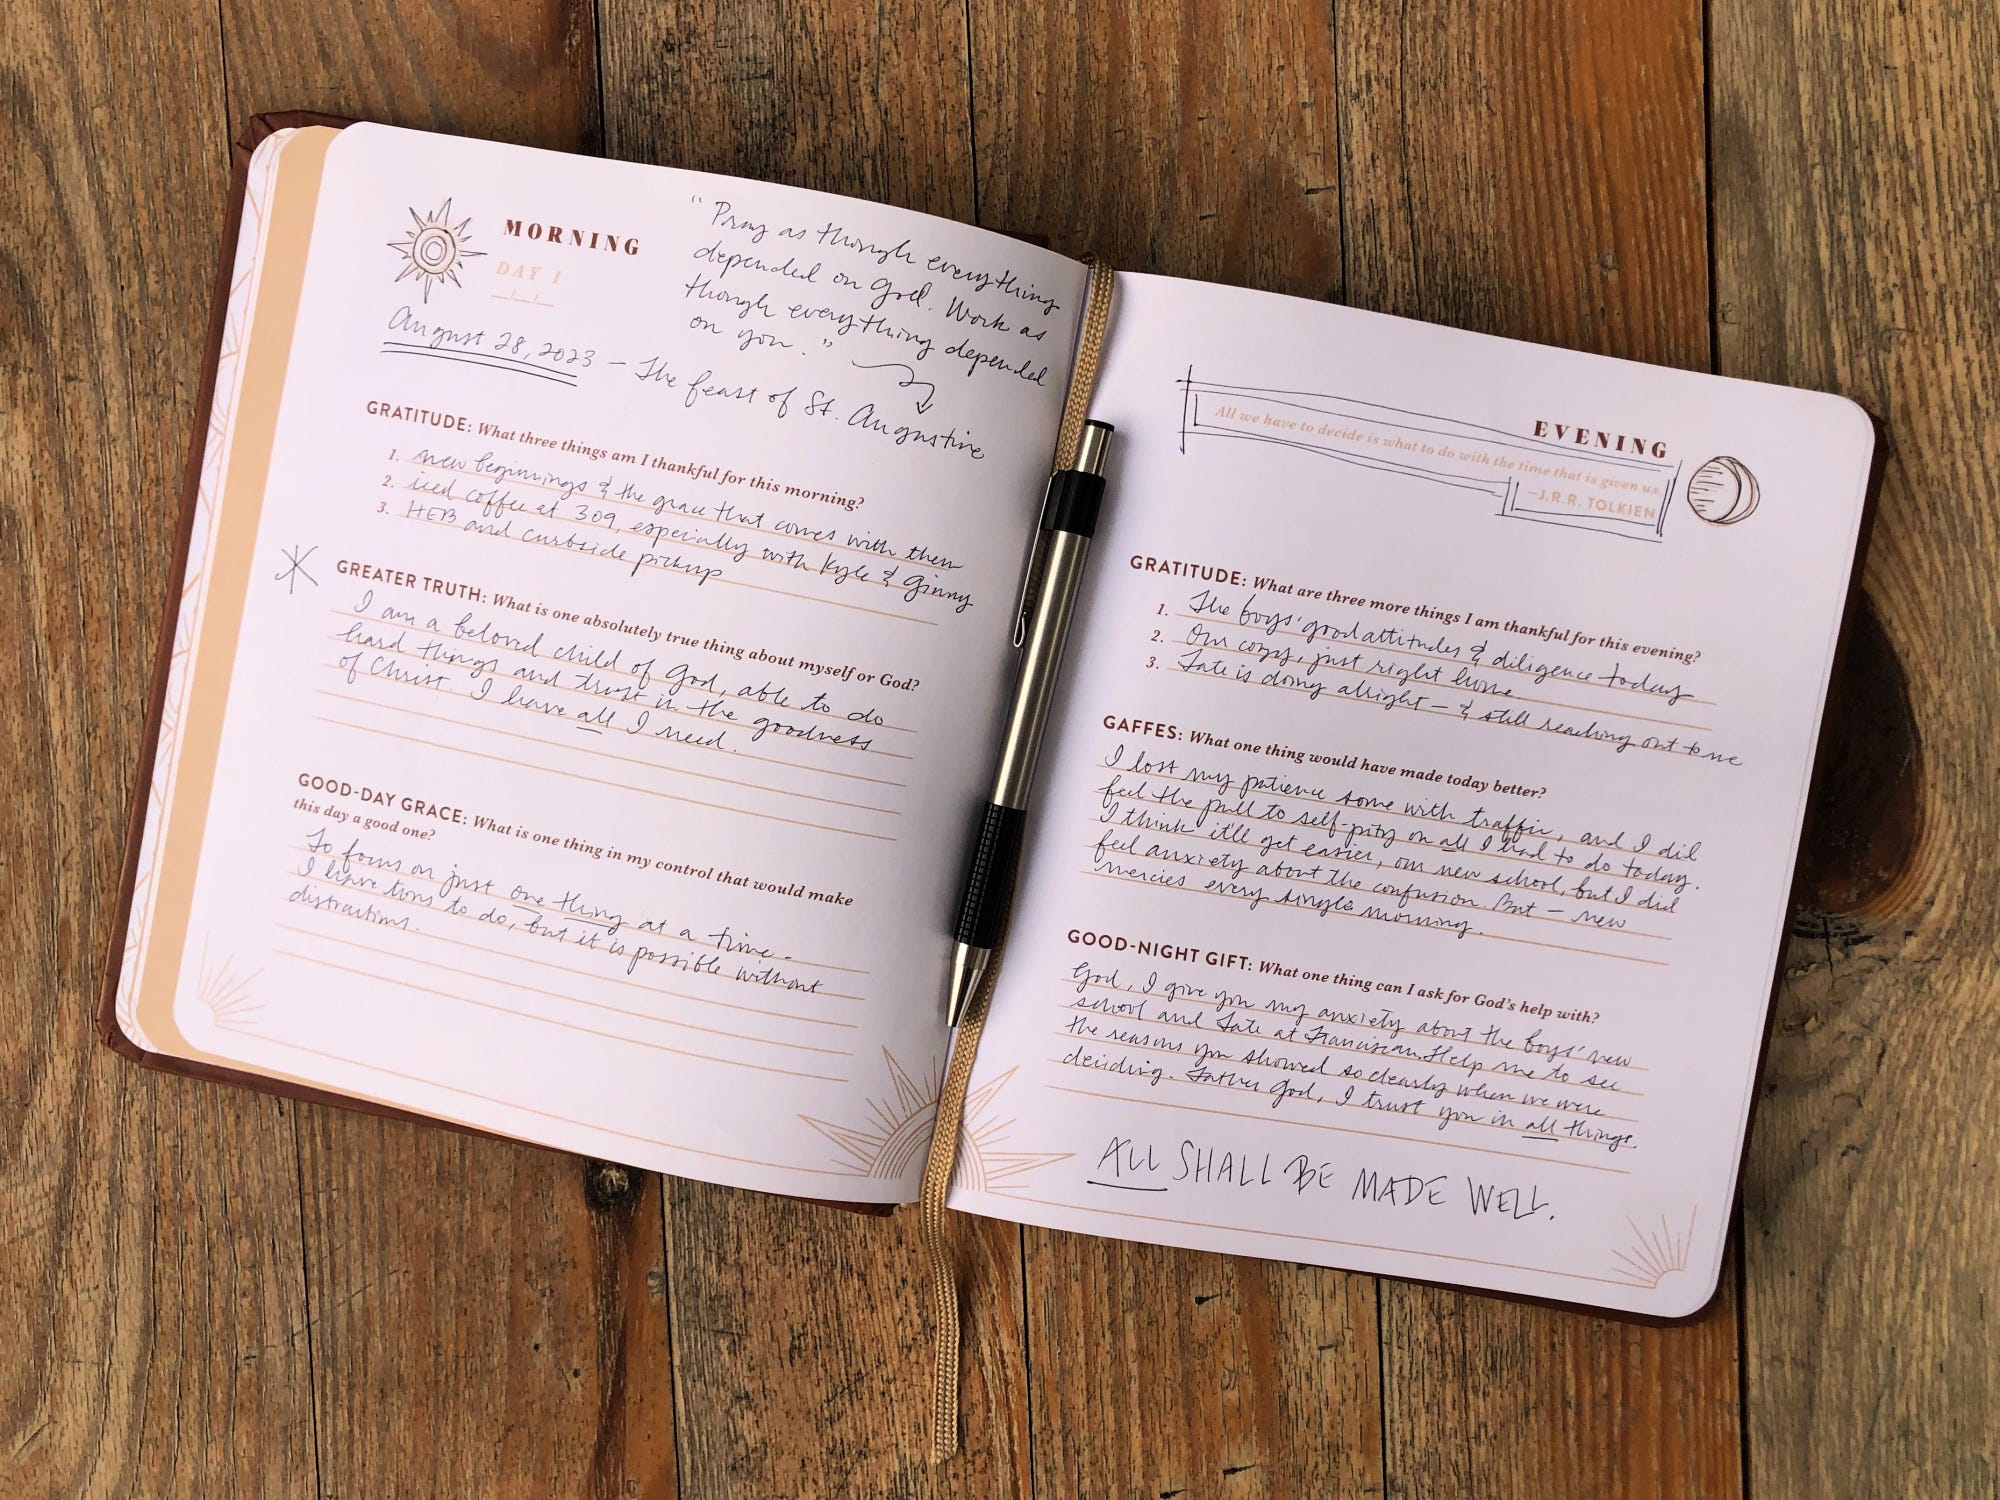 MORNING
DAY 1
"Pray as though everything
depended on God. Work as
though everything depended
on you."
August 28, 2023 – The feast of St. Augustine
GRATITUDE: What three things am I thankful for this morning?
1. new beginnings & the grace that comes with them
2. iced coffee at 309, especially with Kyle & Ginny
3. HEB and curbside pickup
GREATER TRUTH: What is one absolutely true thing about myself or God?
I am a beloved child of God, able to do
hard things and trust in the goodness
of Christ. I have all I need.
GOOD-DAY GRACE: What is one thing in my control that would make
this day a good one?
To focus on just one thing at a time -
I have tons to do, but it is possible without
distractions.
EVENING
All we have to decide is what to do with the time that is given us.
—J.R.R. TOLKIEN
GRATITUDE: What are three more things I am thankful for this evening?
1. The boys' good attitudes & diligence today
2. Our cozy, just right home
3. Tate is doing alright – & still reaching out to me
GAFFES: What one thing would have made today better?
I lost my patience some with traffic, and I did
feel the pull to self-pity on all I had to do today.
I think it'll get easier, our new school, but I did
feel anxiety about the confusion. But – new
mercies every single morning.
GOOD-NIGHT GIFT: What one thing can I ask for God's help with?
God, I give you my anxiety about the boys' new
school and Tate at Franciscan. Help me to see
the reasons you showed so clearly when we were
deciding. Father God, I trust you in all things.
ALL SHALL BE MADE WELL.